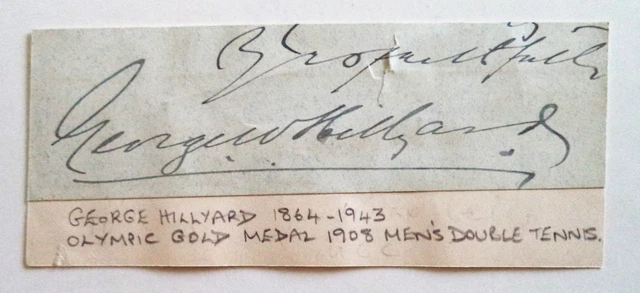 Yrs faithfully
George W Hillyard
GEORGE HILLYARD 1864-1943
OLYMPIC GOLD MEDAL 1908 MEN'S DOUBLE TENNIS.